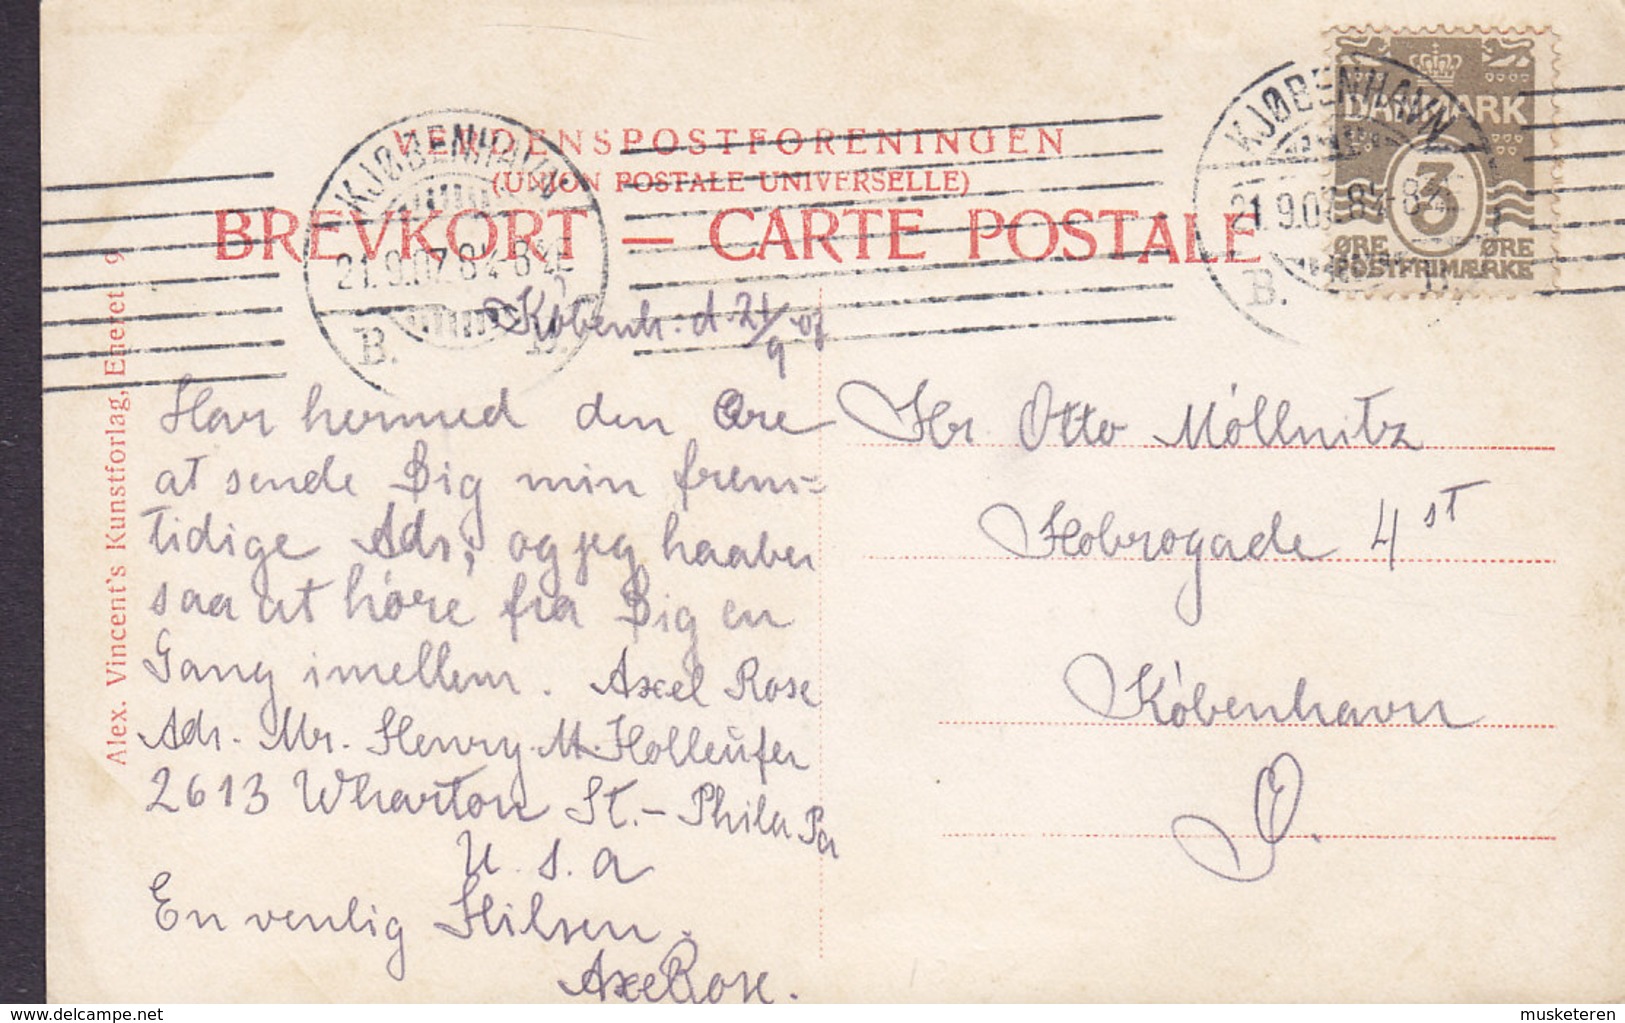 VERDENSPOSTFORENINGEN
(UNION POSTALE UNIVERSELLE)
BREVKORT — CARTE POSTALE
KJØBENHAVN
21.9.07. 8¼-8½E
B. B.
KJØBENHAVN
21.9.07. 8¼-8½
B. B.
DANMARK
3
ØRE ØRE
POSTFRIMÆRKE
Alex. Vincent's Kunstforlag, Eneret. 9
Københ. d. 21/9-07
Har hermed den Ære
at sende Dig min frem=
tidige Adr, og jeg haaber
saa at høre fra Dig en
Gang imellem. Axel Rose
Adr. Mr. Henry M. Holleufer
2613 Wharton St. - Phila Pa
U. S. a
En venlig Hilsen.
Axel Rose.
Hr. Otto Möllnitz
Hobrogade 4 st
København
Ø.
musketeren